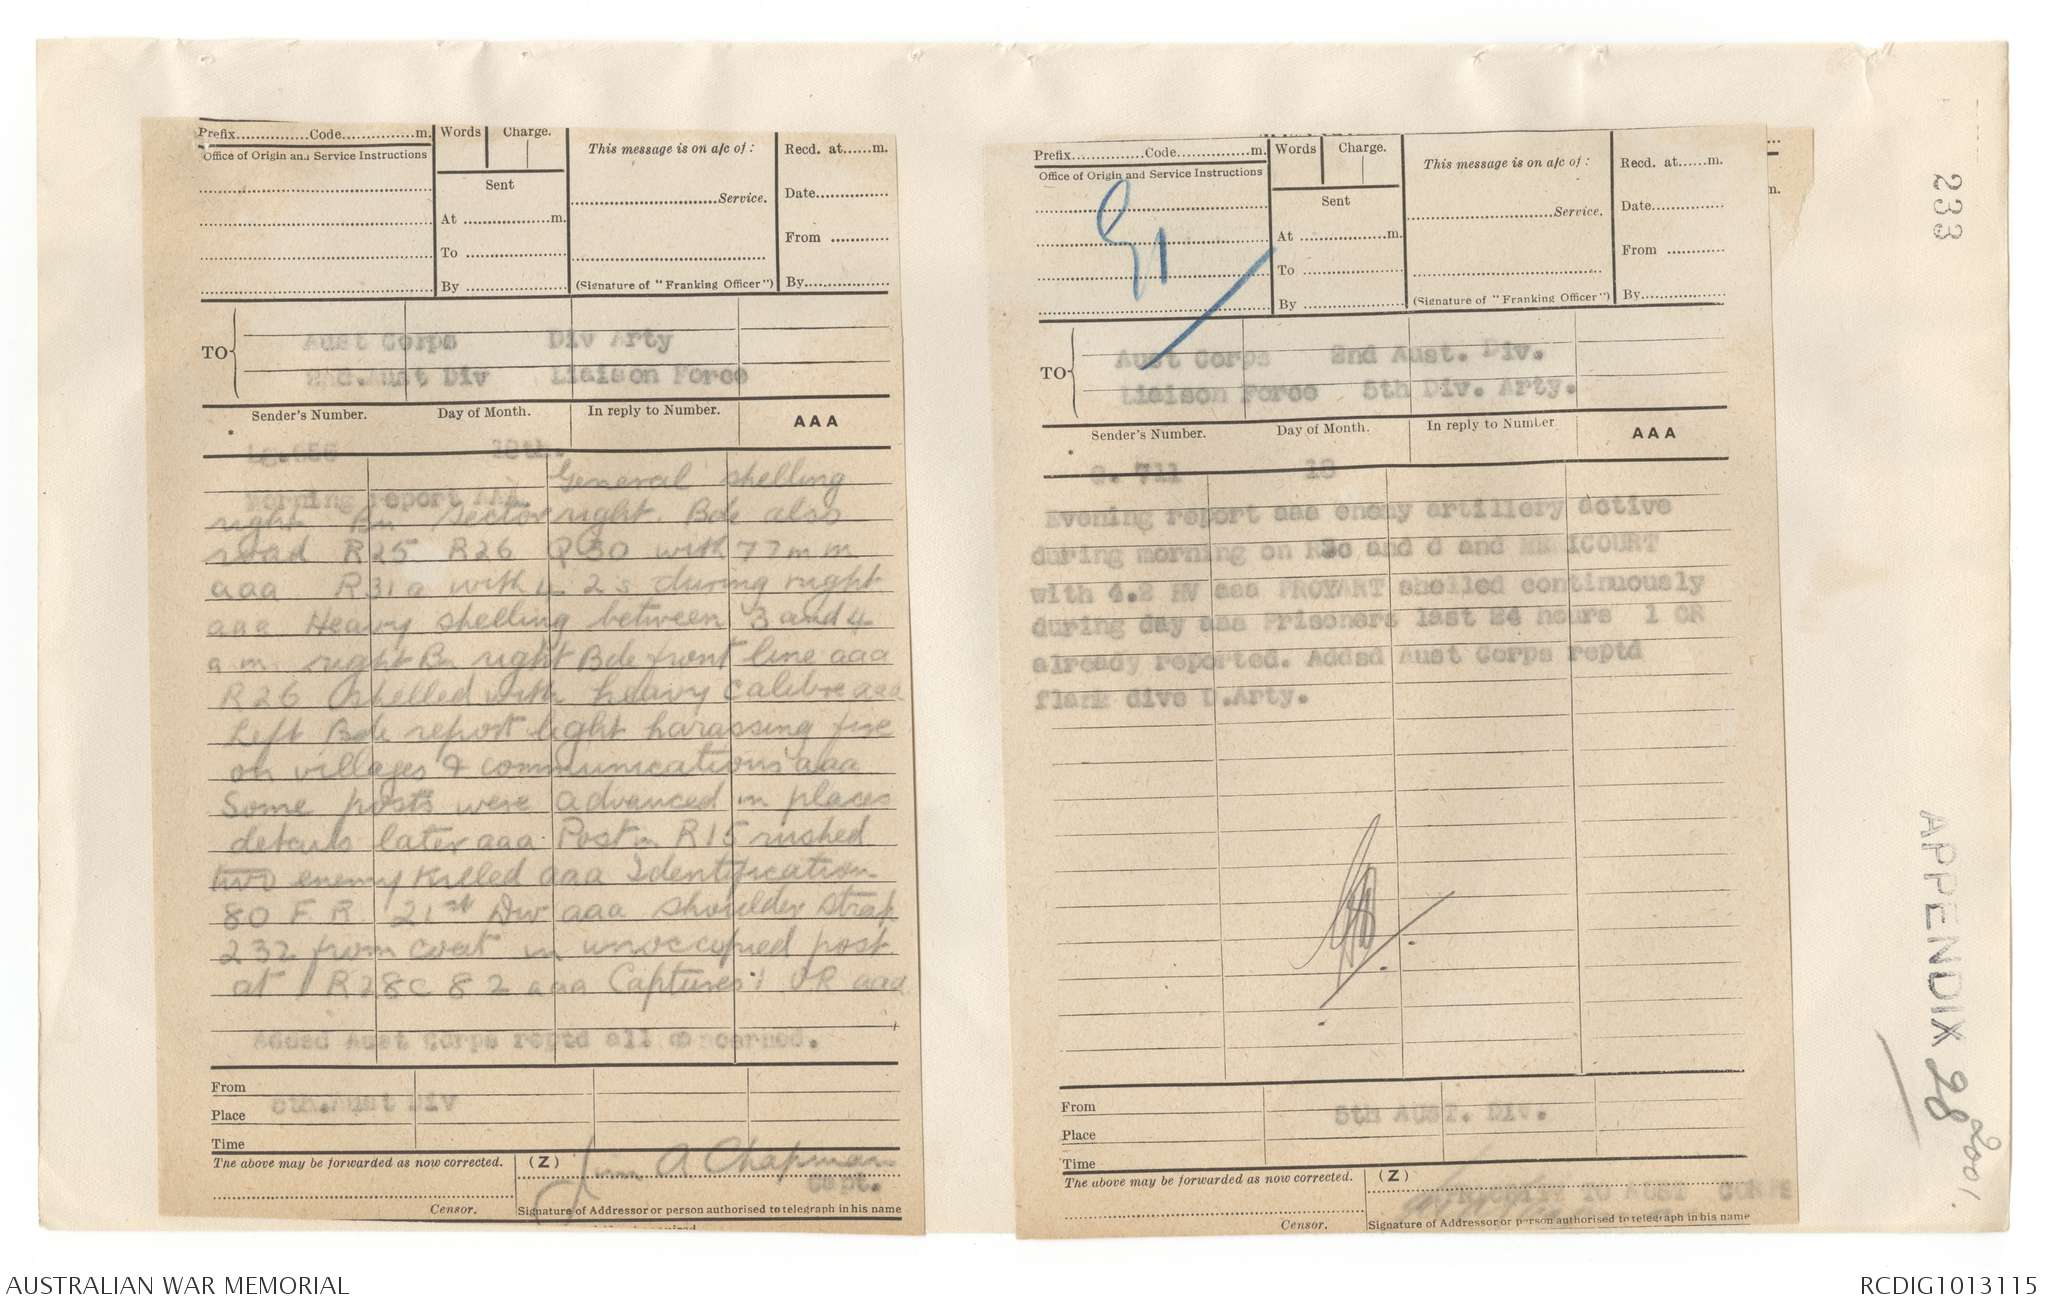 Prefix..............Code..............m.
Words
Charge.
This message is on a/c of:
Recd. at......m.
Office of Origin and Service Instructions
Sent
Date
Service.
At ..............m.
From
To
By
(Signature of "Franking Officer")
By
TO
Aust Corps Div Arty
2nd.Aust Div Liaison Force
Sender's Number.
Day of Month.
In reply to Number.
AAA
18th.
Morning report AAA General shelling
right Bn sector right Bde also
road R25 R26 Q30 with 77 mm
aaa R31a with 4.2s during night
aaa Heavy shelling between 3 and 4
a.m. right Bn right Bde front line aaa
R26 shelled with heavy calibre aaa
Left Bde report light harassing fire
on villages & communications aaa
Some posts were advanced in places
details later aaa Post in R15 rushed
two enemy killed aaa Identification
80 F.R. 21st Div aaa shoulder strap
232 from coat in unoccupied post
at R28c 82 aaa Captures 1 OR aaa
Addsd Aust Corps reptd all concerned.
From
5th.Aust Div
Place
Time
The above may be forwarded as now corrected.
(Z)
A Chapman
Capt.
Censor.
Signature of Addressor or person authorised to telegraph in his name
Prefix..............Code..............m.
Words
Charge.
This message is on a/c of:
Recd. at......m.
Office of Origin and Service Instructions
Sent
Date
Service.
At ..............m.
From
To
By
(Signature of "Franking Officer")
By
G1
TO
Aust Corps 2nd Aust. Div.
Liaison Force 5th Div. Arty.
Sender's Number.
Day of Month.
In reply to Number
AAA
G. 711 18
Evening report aaa enemy artillery active
during morning on R3c and d and MERICOURT
with 4.2 HV aaa PROYART shelled continuously
during day aaa Prisoners last 24 hours 1 OR
already reported. Addsd Aust Corps reptd
flank divs D.Arty.
From
5th AUST. Div.
Place
Time
The above may be forwarded as now corrected.
(Z)
TO AUST CORPS
Censor.
Signature of Addressor or person authorised to telegraph in his name
m.
233
APPENDIX 28
2001.
AUSTRALIAN WAR MEMORIAL
RCDIG1013115